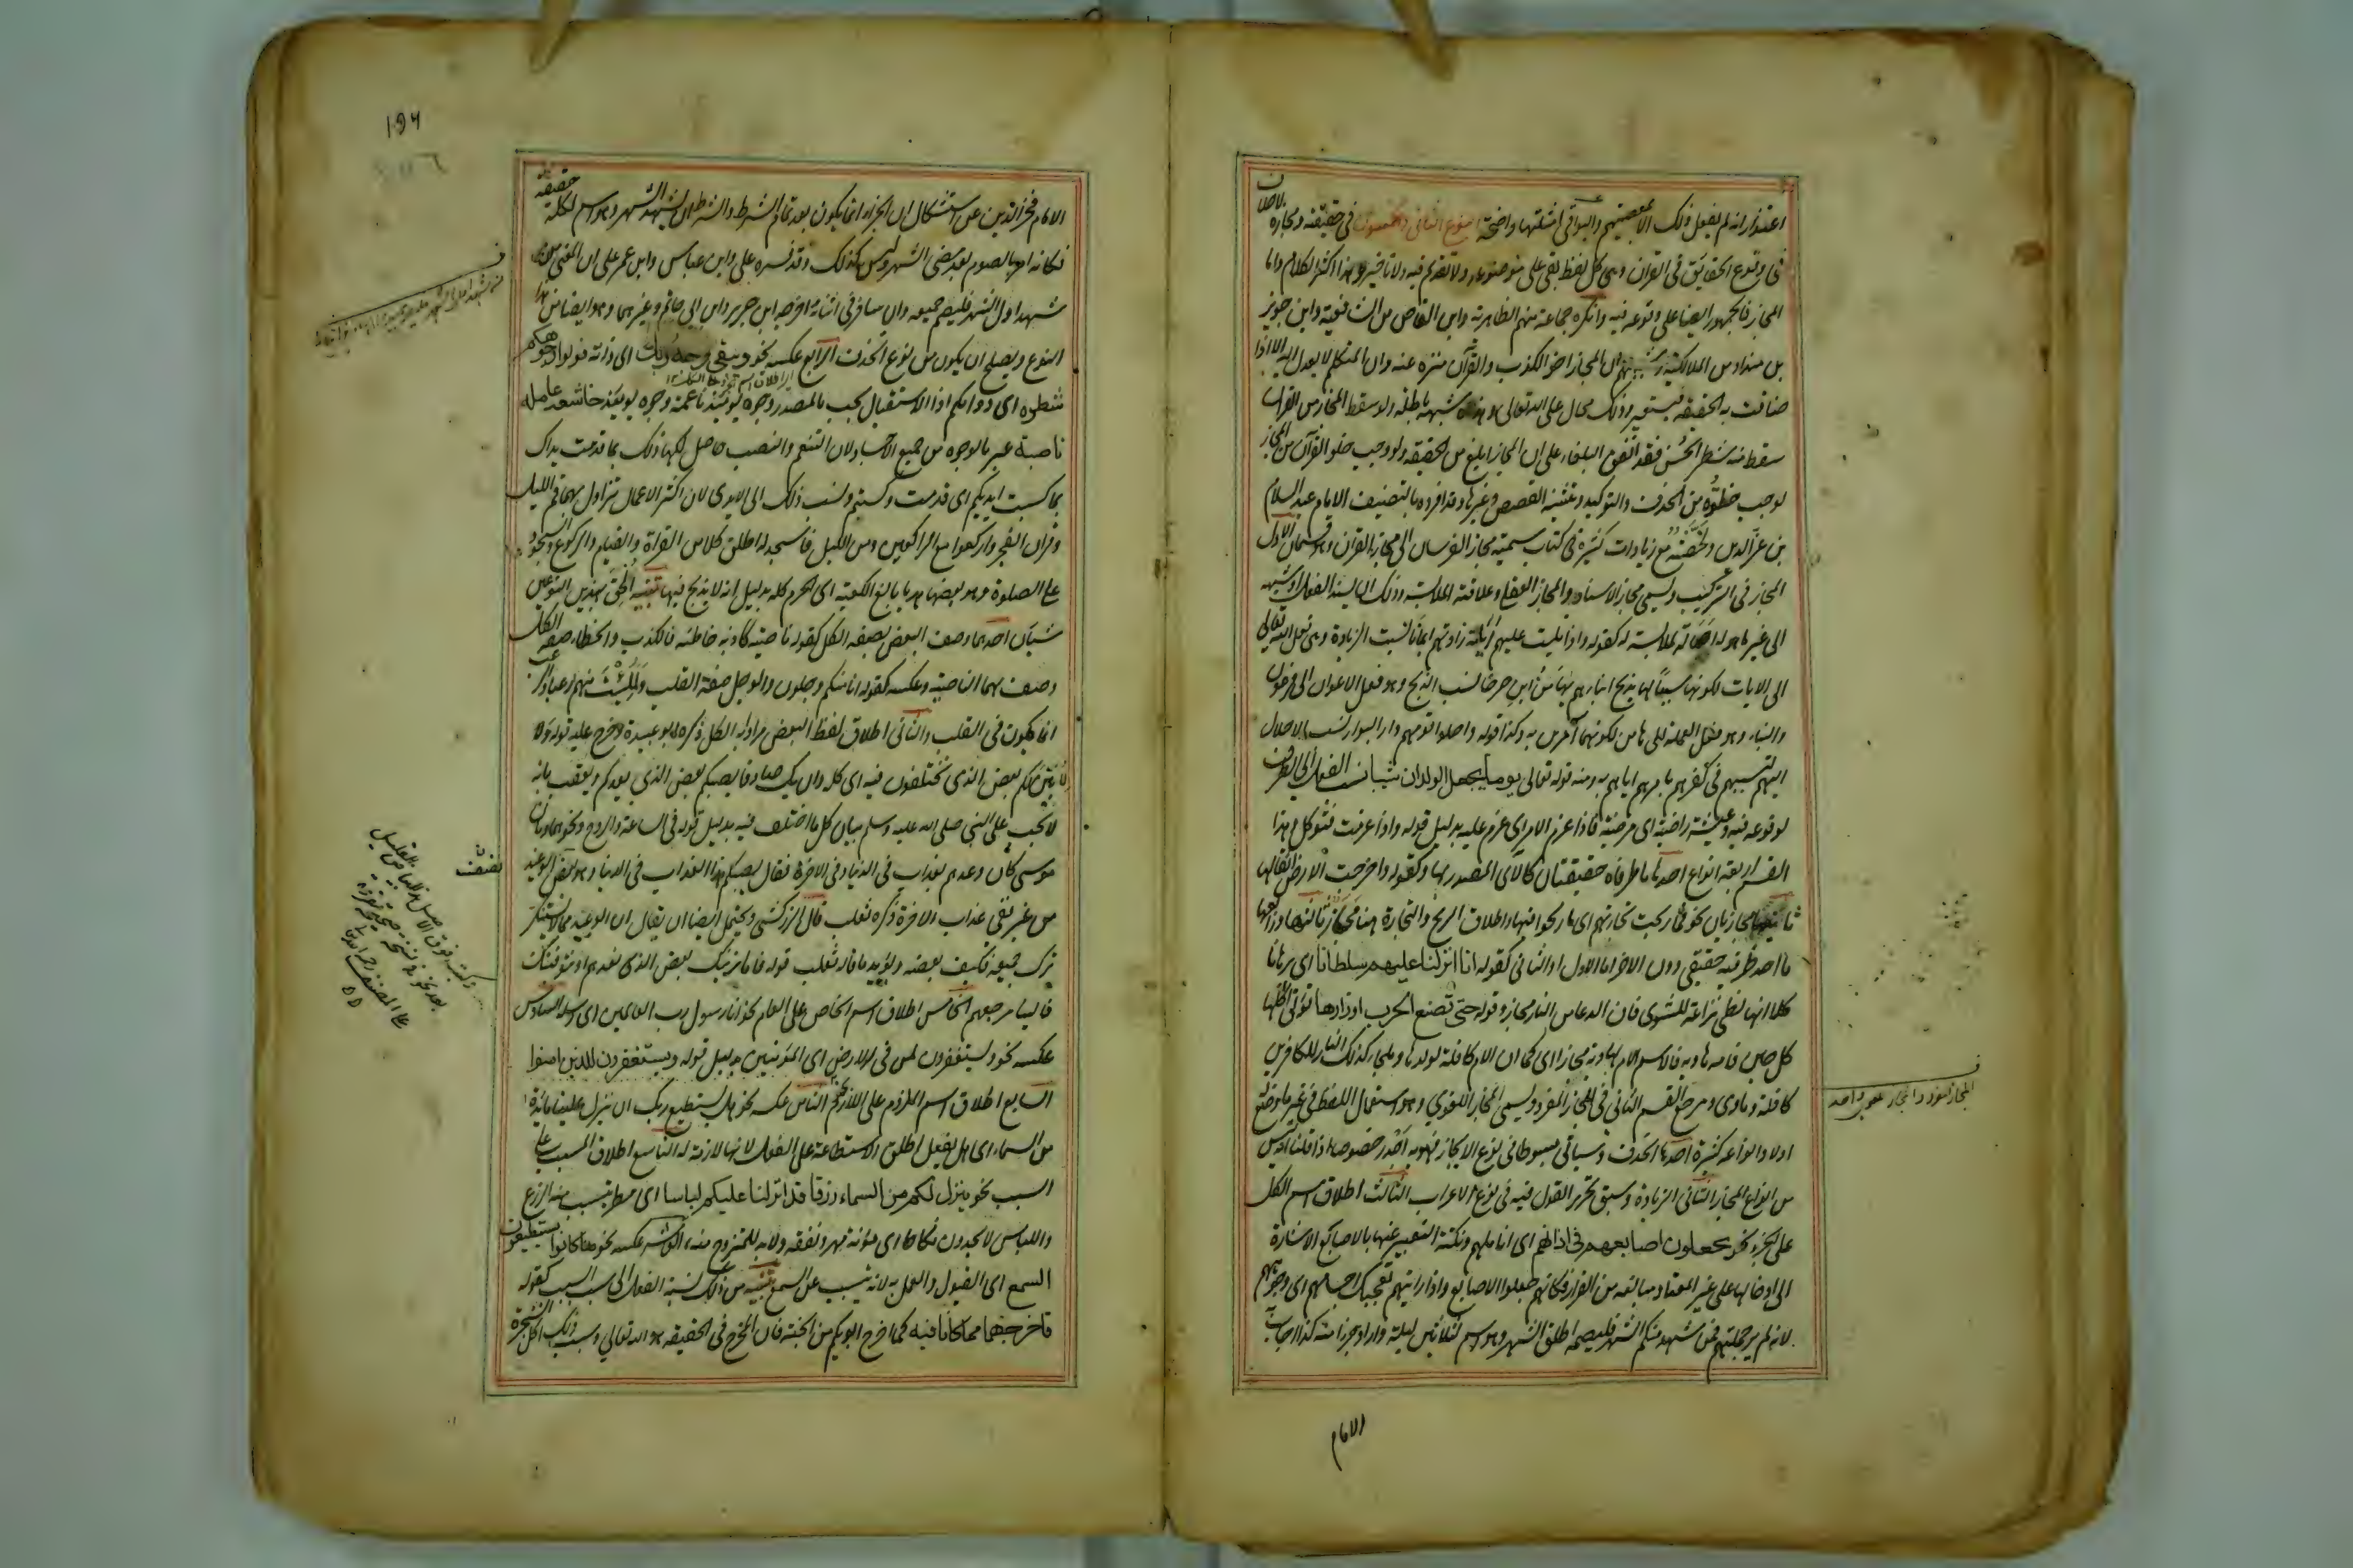 اعتذر انه لم يفعل ذلك الا بعضهم والبواقي امثلتها واضحة النوع الثاني والخمسون في حقيقته ومجازه لا خلاف
في وقوع الحقايق في القران وهي كل لفظ بقي على موضوعه ولا تقديم فيه ولا تاخير وهذا اكثر الكلام واما
المجاز فالجمهور ايضا على وقوعه فيه وانكره جماعة منهم الظاهرية وابن القاص من الشافعية وابن خويز
بن منداد من المالكية وشبهتهم ان المجاز اخو الكذب والقرآن منزه عنه وان المتكلم لا يعدل اليه الا اذا
ضاقت به الحقيقة فيستعير وذلك محال على الله تعالى وهذه شبهة باطلة ولو سقط المجاز من القران
سقط منه شطر الحسن فقد اتفق البلغاء على ان المجاز ابلغ من الحقيقة ولو وجب خلو القرآن من المجاز
لوجب خلوه من الحذف والتوكيد وتثنية القصص وغيرها وقد افرده بالتصنيف الامام عبد السلام
بن عز الدين ولخصته مع زيادات كثيرة في كتاب سميته مجاز الفرسان الى مجاز القران وهو قسمان الاول
المجاز في التركيب ويسمى مجاز الاسناد والمجاز العقلي وعلاقته الملابسة وذلك ان يسند الفعل او شبهه
الى غير ما هو له اصالة لملابسته له كقوله واذا تليت عليهم آياته زادتهم ايمانا نسبت الزيادة وهي فعل الله تعالى
الى الايات لكونها سببا لها يذبح ابناءهم يا هامان ابن لي صرحا نسب الذبح وهو فعل الاعوان الى فرعون
والبناء وهو فعل العملة الى هامان لكونهما آمرين به وكذا قوله واحلوا قومهم دار البوار نسب الاحلال
اليهم لتسببهم في كفرهم بامرهم اياهم به ومنه قوله تعالى يوما يجعل الولدان شيبا نسب الفعل الى الظرف
لوقوعه فيه وعيشة راضية اي مرضية فاذا عزم الامر اي عزم عليه بدليل قوله واذا عزمت فتوكل وهذا
القسم اربعة انواع احدها ما طرفاه حقيقتان كالآى المصدر بها وكقوله واخرجت الارض اثقالها
ثانيها مجازيان نحو فما ربحت تجارتهم اي ما ربحوا فيها واطلاق الربح والتجارة هنا مجاز ثالثها ورابعها
ما احد طرفيه حقيقي دون الاخر اما الاول او الثاني كقوله انا انزلنا عليهم سلطانا اي برهانا
كلا انها لظى نزاعة للشوى فان الدعاء من النار مجاز وقوله حتى تضع الحرب اوزارها تؤتي اكلها
كل حين فامه هاوية فالاسم الام لهاوية مجاز اي كما ان الام كافلة لولدها وملجا كذلك النار للكافرين
كافلة وماوى ومرجع القسم الثاني في المجاز المفرد ويسمى المجاز اللغوي وهو استعمال اللفظ في غير ما وضع له
اولا وانواعه كثيرة احدها الحذف وسياتي مبسوطا في نوع الايجاز فهو به اجدر خصوصا اذا قلنا انه ليس
من انواع المجاز الثاني الزيادة وسبق تحرير القول فيه في نوع الاعراب الثالث اطلاق اسم الكل
على الجزء نحو يجعلون اصابعهم في اذانهم اي اناملهم ونكتة التعبير عنها بالاصابع الاشارة
الى ادخالها على غير المعتاد مبالغة من الفرار فكانهم جعلوا الاصابع واذا رايتهم تعجبك اجسامهم اي وجوههم
لانه لم ير جملتهم فمن شهد منكم الشهر فليصمه اطلق الشهر وهو اسم لثلاثين ليلة واراد جزءا منه كذا اجاب به
الامام
المجاز المفرد والمجاز
١٩٦
الامام فخر الدين عن استشكال ان الجزاء انما يكون بعد تمام الشرط والشرط ان يشهد الشهر وهو اسم لكله حقيقة
فكانه امر بالصوم بعد مضي الشهر وليس كذلك وقد فسره علي وابن عباس وابن عمر على ان المعنى من
شهد اول الشهر فليصم جميعه وان سافر في اثنائه اخرجه ابن جرير وابن ابي حاتم وغيرهما وهو ايضا من هذا
النوع ويصلح ان يكون من نوع الحذف الرابع عكسه نحو ويبقى وجه ربك اي ذاته فولوا وجوهكم
شطره اي ذواتكم اذ الاستقبال يجب بالصدر وجوه يومئذ ناعمة وجوه يومئذ خاشعة عاملة
ناصبة عبر بالوجوه عن جميع الاجساد لان التنعم والنصب حاصل لكلها ذلك بما قدمت يداك
بما كسبت ايديكم اي قدمت وكسبتم ونسب ذلك الى الايدي لان اكثر الاعمال تزاول بهما قم الليل
وقران الفجر واركعوا مع الراكعين ومن الليل فاسجد له اطلق كلا من القراة والقيام والركوع والسجود
على الصلوة وهو بعضها هديا بالغ الكعبة اي الحرم كله بدليل انه لا يذبح فيها تنبيه الحق بهذين النوعين
شيآن احدهما وصف البعض بصفة الكل كقوله ناصية كاذبة خاطئة فالكذب والخطا صفة الكل
وصف بهما الناصية وعكسه كقوله انا منكم وجلون والوجل صفة القلب ولملئت منهم رعبا والرعب
انما يكون في القلب والثاني اطلاق لفظ البعض مرادا به الكل ذكره ابو عبيدة وخرج عليه قوله ولا
لابين لكم بعض الذي تختلفون فيه اي كله وان يك صادقا يصبكم بعض الذي يعدكم وتعقب بانه
لا يجب على النبي صلى الله عليه وسلم بيان كل ما اختلف فيه بدليل قوله في الساعة والروح ونحوهما وبان
موسى كان وعدهم بعذاب في الدنيا وفي الاخرة فقال يصبكم هذا العذاب في الدنيا وهو بعض الوعيد
من غير نفي عذاب الاخرة ذكره ثعلب قال الزركشي ويحتمل ايضا ان يقال ان الوعيد مما لا يستنكر
ترك جميعه فكيف بعضه ويؤيد ما قاله ثعلب قوله فاما نرينك بعض الذي نعدهم او نتوفينك
فالينا مرجعهم الخامس اطلاق اسم الخاص على العام نحو انا رسول رب العالمين اي رسله السادس
عكسه نحو ويستغفرون لمن في الارض اي المؤمنين بدليل قوله ويستغفرون للذين امنوا
السابع اطلاق اسم الملزوم على اللازم الثامن عكسه نحو هل يستطيع ربك ان ينزل علينا مائدة
من السماء اي هل يفعل اطلق الاستطاعة على الفعل لانها لازمة له التاسع اطلاق المسبب على
السبب نحو ينزل لكم من السماء رزقا قد انزلنا عليكم لباسا اي مطرا يتسبب عنه الرزق
واللباس لا يجدون نكاحا اي مؤنة مهر ونفقة ولا بد للمتزوج منه العاشر عكسه نحو ما كانوا يستطيعون
السمع اي القبول والعمل به لانه تسبب عن السمع تنبيه من ذلك نسبة الفعل الى سبب السبب كقوله
فاخرجهما مما كانا فيه كما اخرج ابويكم من الجنة فان المخرج في الحقيقة هو الله تعالى وسبب ذلك اكل الشجرة